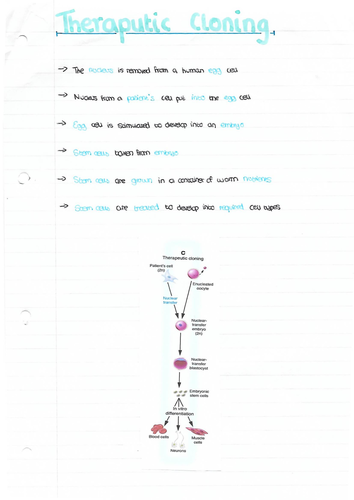 Theraputic Cloning
→ The nucleus is removed from a human egg cell
→ Nucleus from a patient's cell put into the egg cell
→ Egg cell is stimulated to develop into an embryo
→ Stem cells taken from embryo
→ Stem cells are grown in a container of warm nutrients
→ Stem cells are treated to develop into required cell types
C
Therapeutic cloning
Patient's cell
(2n)
Enucleated
oocyte
Nuclear
transfer
Nuclear-
transfer
embryo
(2n)
Nuclear-
transfer
blastocyst
Embryonic
stem cells
In vitro
differentiation
Blood cells
Muscle
cells
Neurons